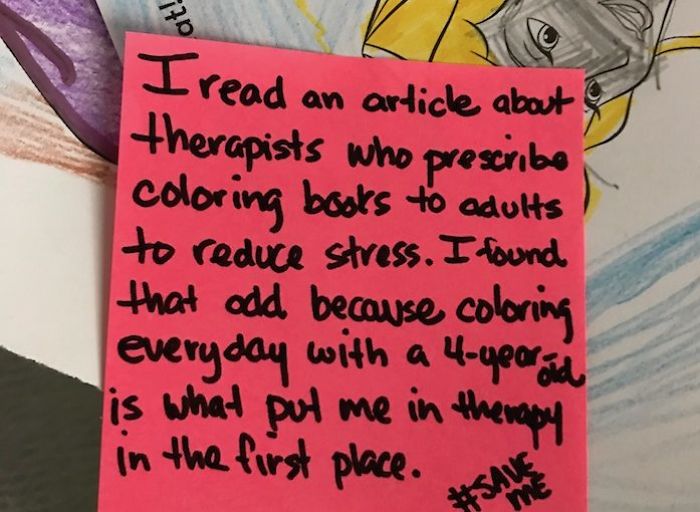 I read an article about
therapists who prescribe
coloring books to adults
to reduce stress. I found
that odd because coloring
everyday with a 4-year-old
is what put me in therapy
in the first place.
#SAVE
ME